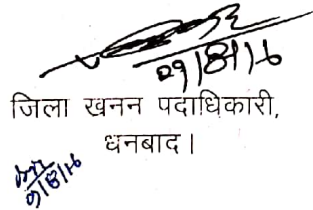 09/8/16
जिला खनन पदाधिकारी,
धनबाद।
9/8/16